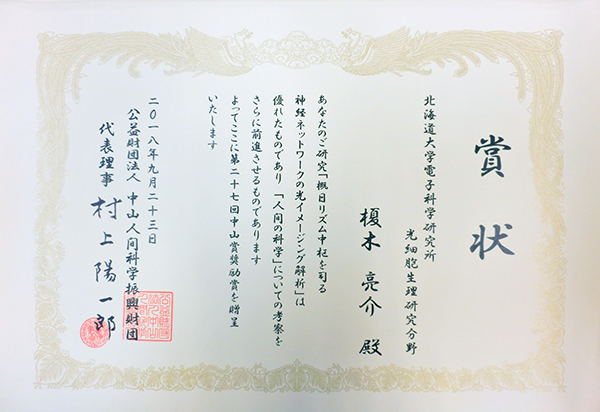 賞状
北海道大学電子科学研究所
光細胞生理研究分野
榎木亮介殿
あなたのご研究「概日リズム中枢を司る
神経ネットワークの光イメージング解析」は
優れたものであり、「人間の科学」についての考察を
さらに前進させるものであります
よってここに第二十七回中山賞奨励賞を贈呈
いたします
二〇一八年九月二十三日
公益財団法人 中山人間科学振興財団
代表理事 村上陽一郎